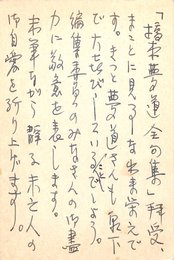 「橋本夢道全句集」拝受、
まことに見るも出来栄えで
す。きっと夢道さんも泉下
で大よろこびしているでしょう。
編集委員のみなさんの御尽
力に敬意を表します。
末筆ながら静子未亡人の
御自愛を祈り上げます。